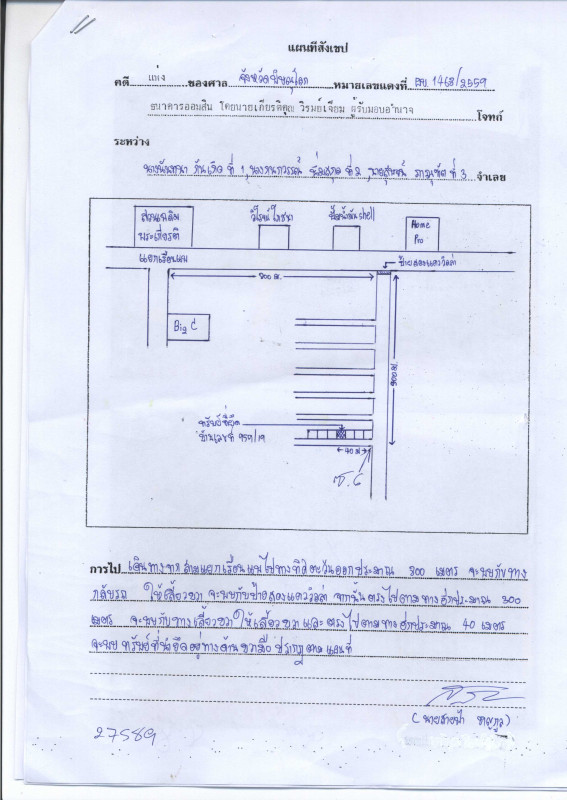 แผนที่สังเขป
คดี แพ่ง ของศาล จังหวัดพิษณุโลก หมายเลขแดงที่ ผบ. 1468/2559
ธนาคารออมสิน โดยนายเกียรติคุณ วิรมย์เจียม ผู้รับมอบอำนาจ โจทก์
ระหว่าง
ที่ 1, ที่ 2, ที่ 3 จำเลย
สวนเฉลิม
พระเกียรติ
วิโรจน์
ปั๊มน้ำมัน shell
Home
Pro
แยกเรือนแพ
300 ม.
Big C
300 ม.
ทรัพย์ที่ยึด
บ้านเลขที่ 959/19
40 ม.
ซ.6
การไป เดินทางจากสามแยกเรือนแพไปทางทิศตะวันออกประมาณ 300 เมตร จะพบกับทาง
กลับรถ ให้เลี้ยวขวา จะพบกับป้าย จากนั้นตรงไปตามทางอีกประมาณ 300
เมตร จะพบกับทางเลี้ยวขวา ให้เลี้ยวขวา และตรงไปตามทางอีกประมาณ 40 เมตร
จะพบ ทรัพย์ที่นำยึดอยู่ทางด้านขวามือ ปรากฏตามแผนที่
27589